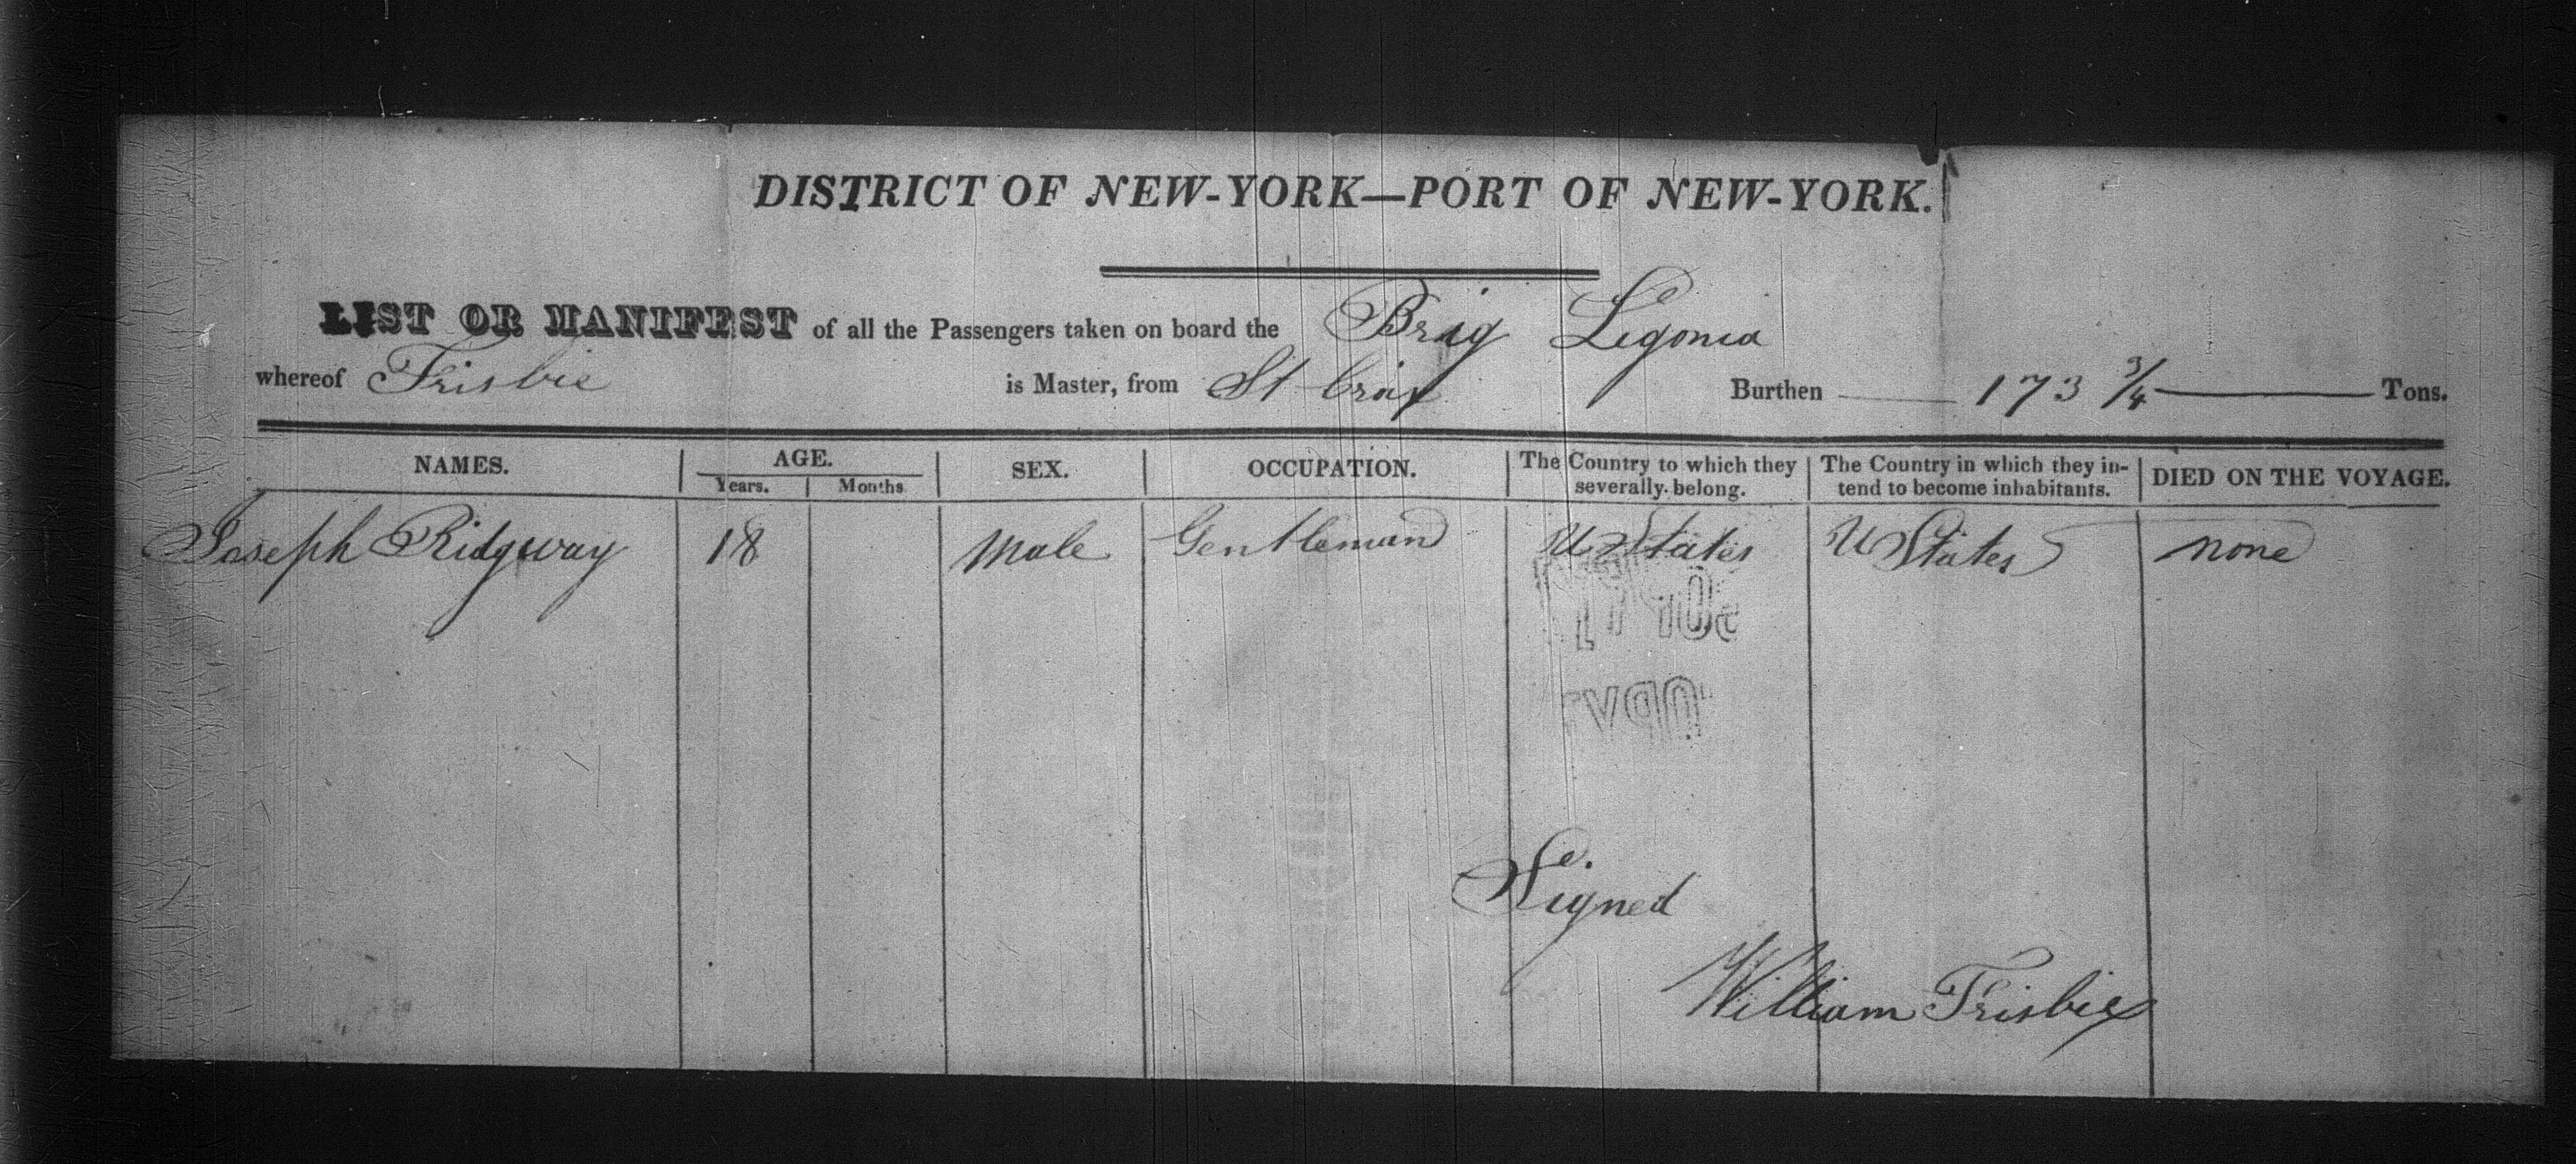 DISTRICT OF NEW-YORK—PORT OF NEW-YORK.
LIST OR MANIFEST of all the Passengers taken on board the Brig Ligonia
whereof Frisbie is Master, from St Croix Burthen 173 3/4 Tons.
NAMES. AGE. SEX. OCCUPATION. The Country to which they severally belong. The Country in which they intend to become inhabitants. DIED ON THE VOYAGE.
Years. Months
Joseph Ridgway 18 Male Gentleman U States U States none
Signed
William Frisbie